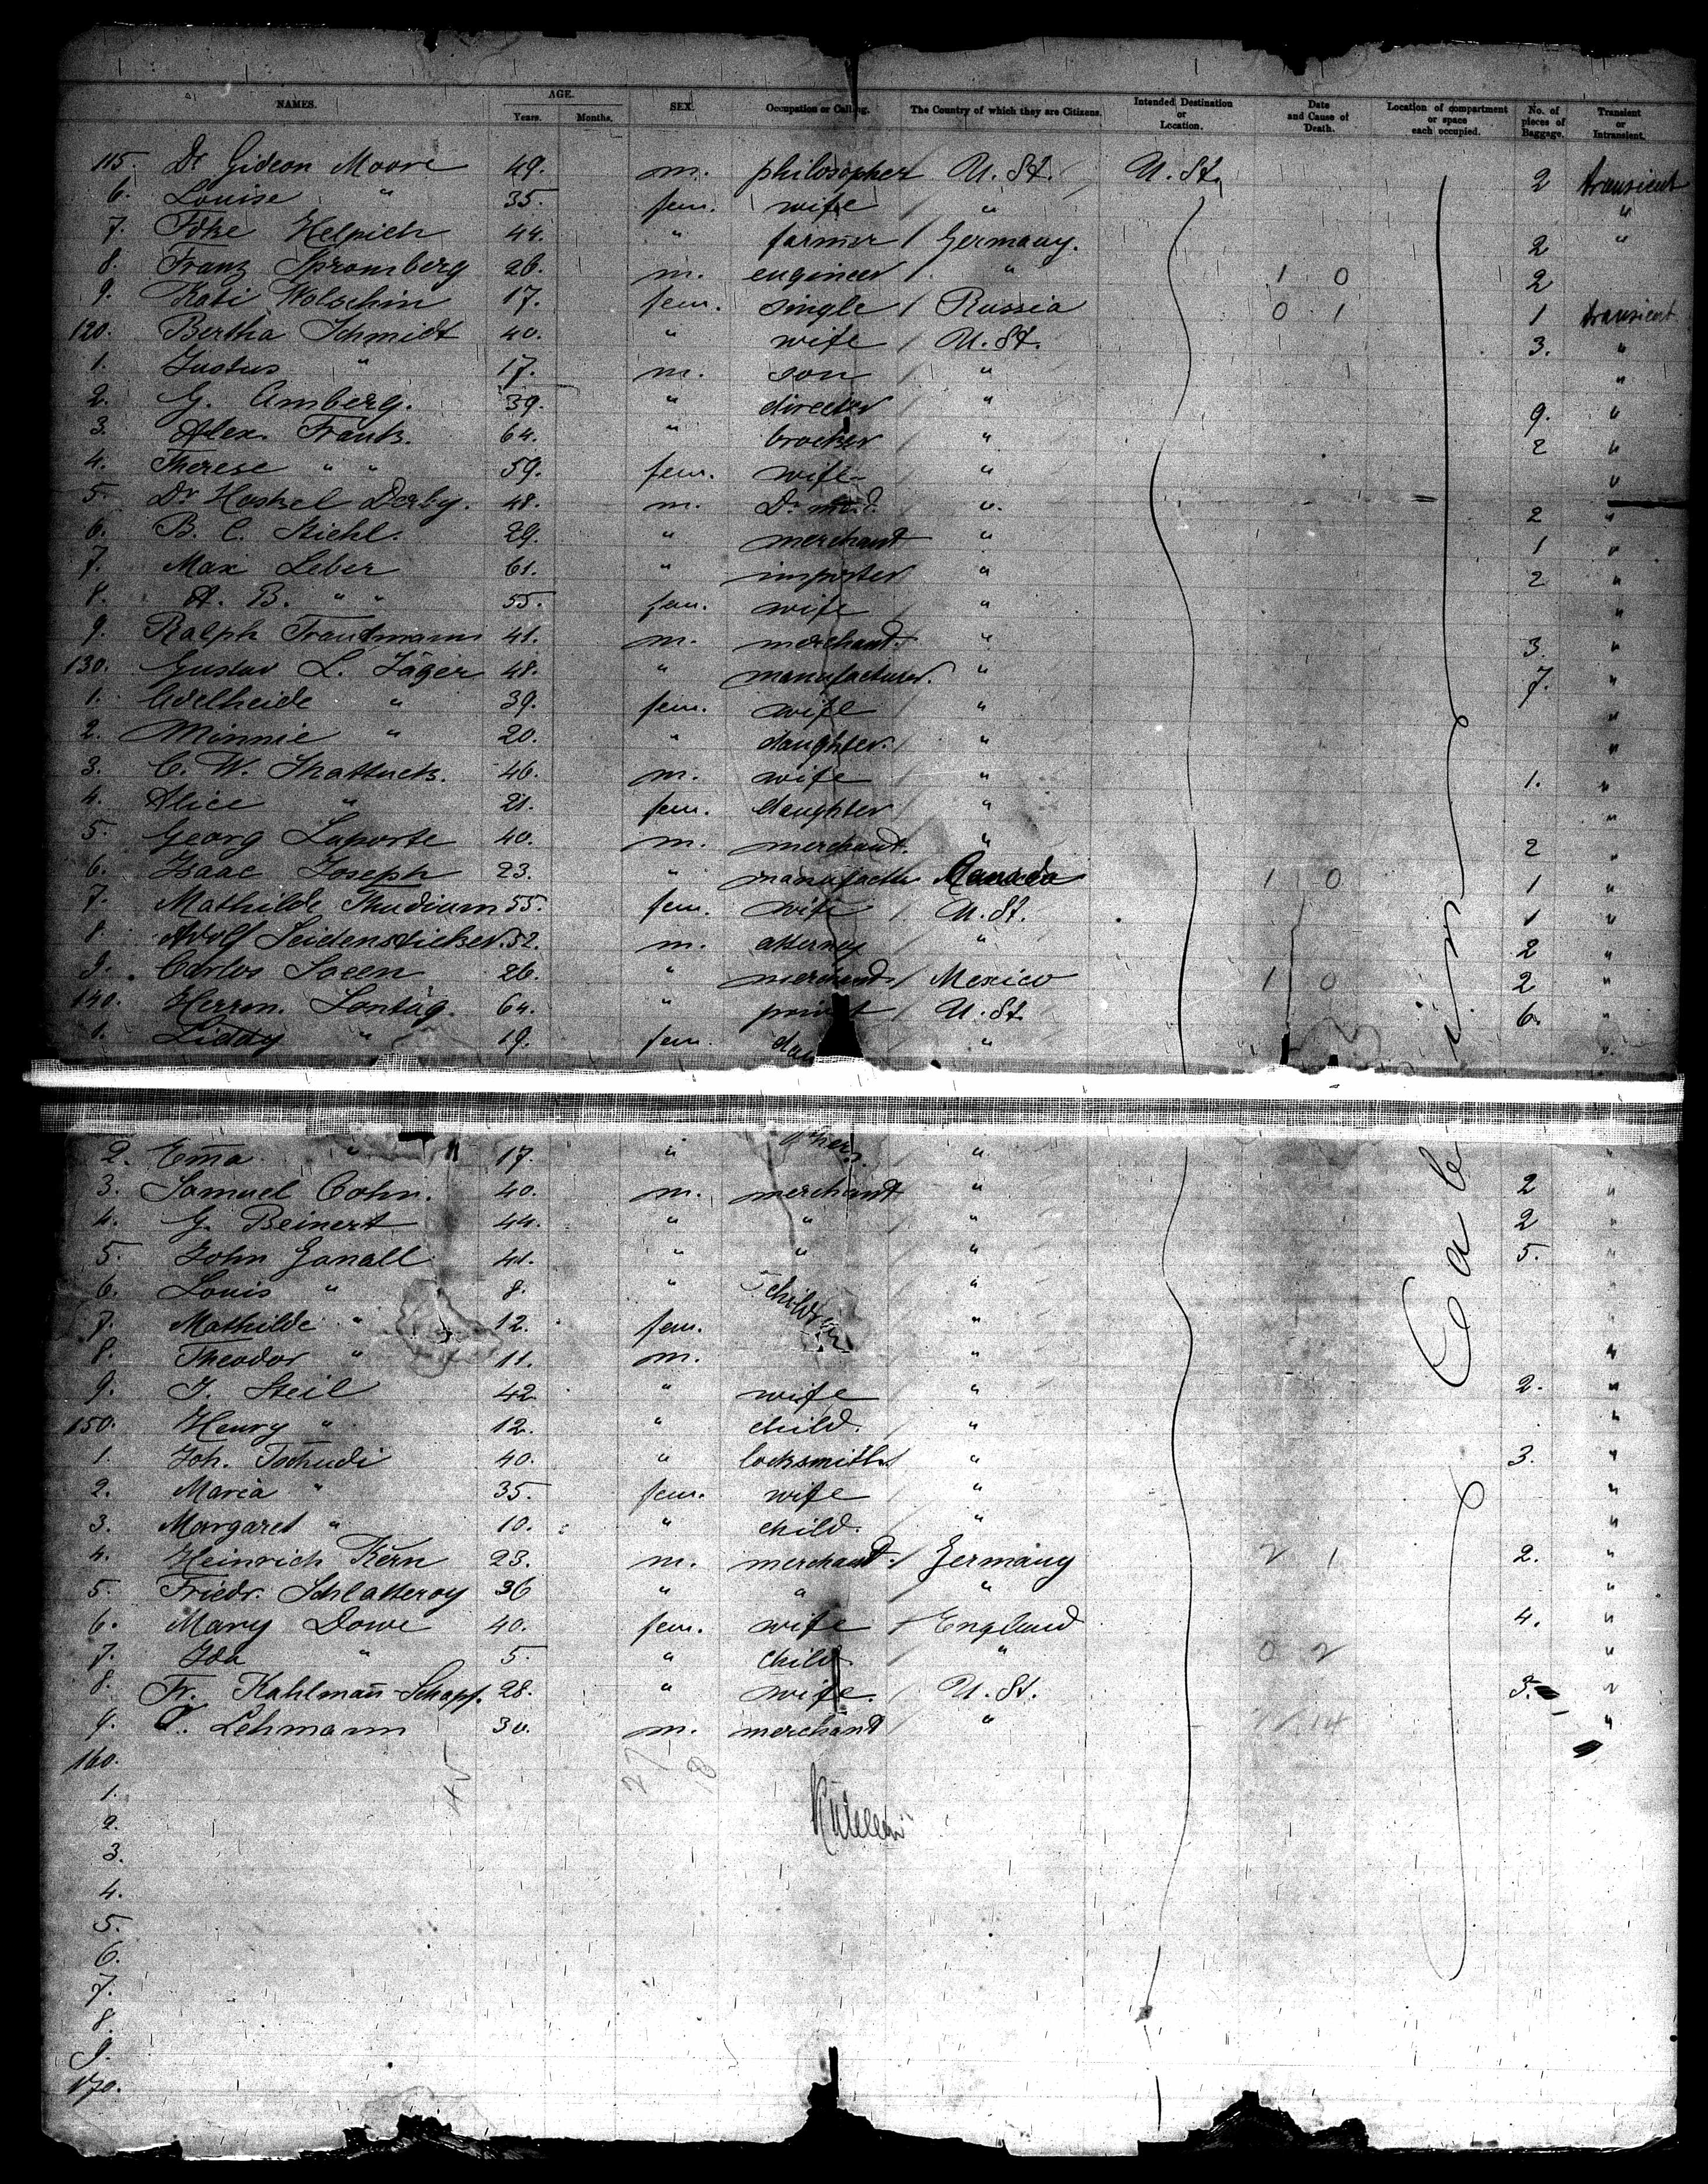 NAMES. AGE. Years. Months. SEX. Occupation or Calling. The Country of which they are Citizens. Intended Destination or Location. Date and Cause of Death. Location of compartment or space each occupied. No. of pieces of Baggage. Transient or Intransient.
115. Dr Gideon Moore 49. m. philosopher U. St. U. St. 2 transient
6. Louise " 35. fem. wife " "
7. Helpich 44. " farmer Germany. 2 "
8. Franz Spromberg 26. m. engineer " 1 0 2
9. Kati Wolschin 17. fem. single Russia 0 1 1 transient
120. Bertha Schmidt 40. " wife U. St. 3. "
1. Justus " 17. m. son " "
2. G. Amberg. 39. " director " 9. "
3. Alex. Frank. 64. " brocker " 2 "
4. Therese " " 59. fem. wife " "
5. Dr Derby. 48. m. Dr med. " 2 "
6. B. C. Stiehl. 29. " merchant " 1 "
7. Max Leber 61. " importer " 2 "
8. A. B. " " 55. fem. wife " "
9. Ralph Trautmann 41. m. merchant. " 3. "
130. Gustav L. Jäger 48. " manufacturer. " 7. "
1. Adelheide " 39. fem. wife " "
2. Minnie " 20. " daughter. " "
3. C. W. Shattuck. 46. m. wife " 1. "
4. Alice " 21. fem. daughter " "
5. Georg Laporte 40. m. merchant. " 2 "
6. Isaac Joseph 23. " manufactu Canada 1 0 1 "
7. Mathilde Thudium 55. fem. wife U. St. 1 "
8. Adolf Seidensticker. 52. m. attorney " 2 "
9. Carlos 26. " merchand Mexico 1 0 2 "
140. Herrm. Sontag. 64. " privat U. St. 6. "
1. Liddy " 19. fem. dau " "
2. Ema " 17. " " "
3. Samuel Cohn. 40. m. merchant " 2 "
4. G. Beinert 44. " " " 2 "
5. John Ganall 41. " " " 5. "
6. Louis " 8. " children " "
7. Mathilde " 12. fem. " "
8. Theodor " 11. m. " "
9. J. Steil 42. " wife " 2. "
150. Henry " 12. " child. " "
1. Joh. Tschudi 40. " locksmith " 3. "
2. Maria " 35. fem. wife " "
3. Margaret " 10. " child. " "
4. Heinrich Kern 23. m. merchant. Germany 2 1 2. "
5. Friedr. 36 " " " "
6. Mary Dowe 40. fem. wife England 4. "
7. Ida " 5. " child " 0 2 "
8. Fr. Kahlmañ-Schapf. 28. " wife. U. St. 3. "
9. Lehmann 30. m. merchant " 14 "
160.
1.
2.
3.
4.
5.
6.
7.
8.
9.
170.